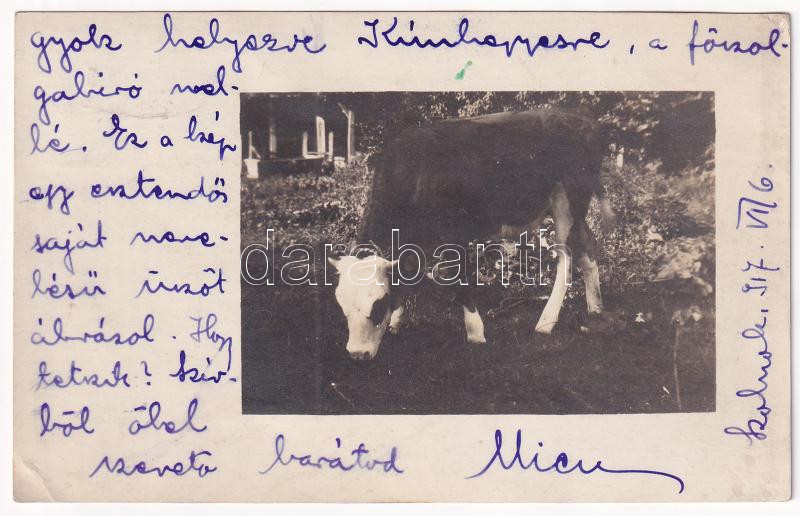 gyok helyezve Kunhegyesre, a főszol-
gabiró mel-
lé. Ez a kép
egy esztendős
saját neve-
lésü üszőt
ábrázol. Hogy
tetszik? Sziv-
ből ölel
szerető barátod Micu
Szolnok. 917. VII/6.
darabanth